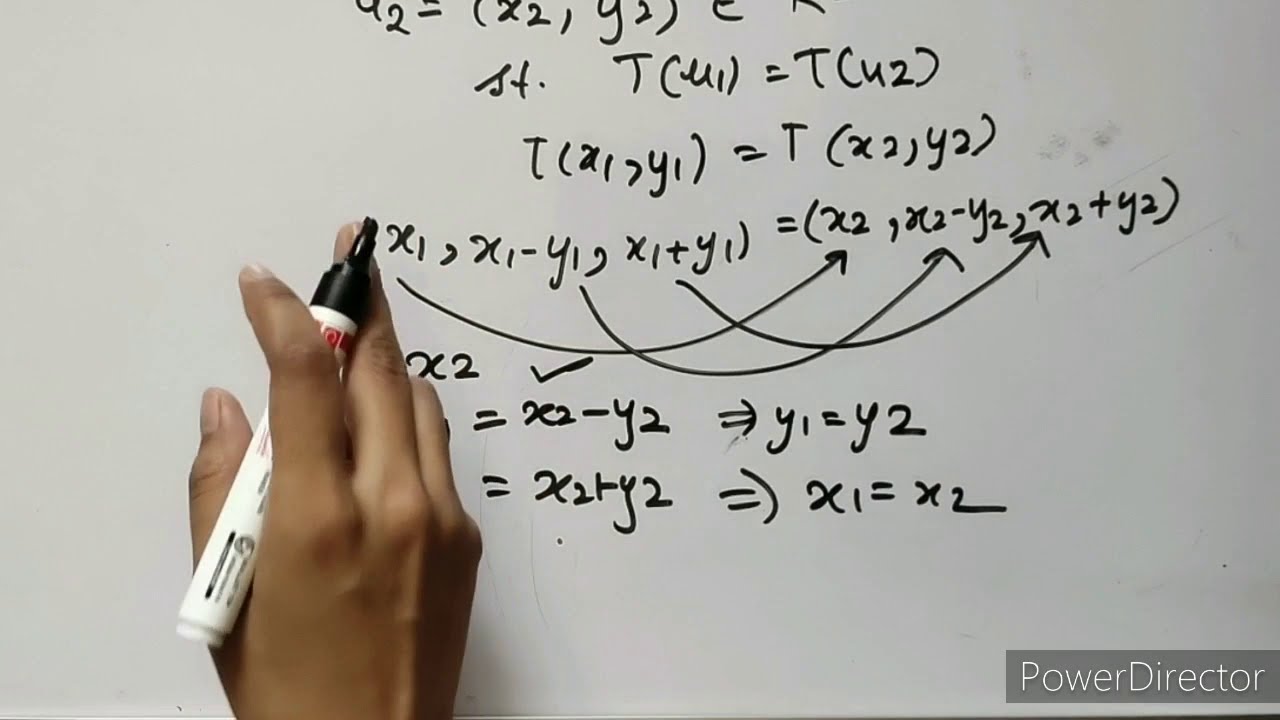 u2 = (x2, y2) ∈ R
st. T(u1) = T(u2)
T(x1, y1) = T(x2, y2)
x1, x1-y1, x1+y1) = (x2, x2-y2, x2+y2)
x2 ✓
= x2-y2 ⇒ y1 = y2
= x2+y2 ⇒ x1 = x2
PowerDirector